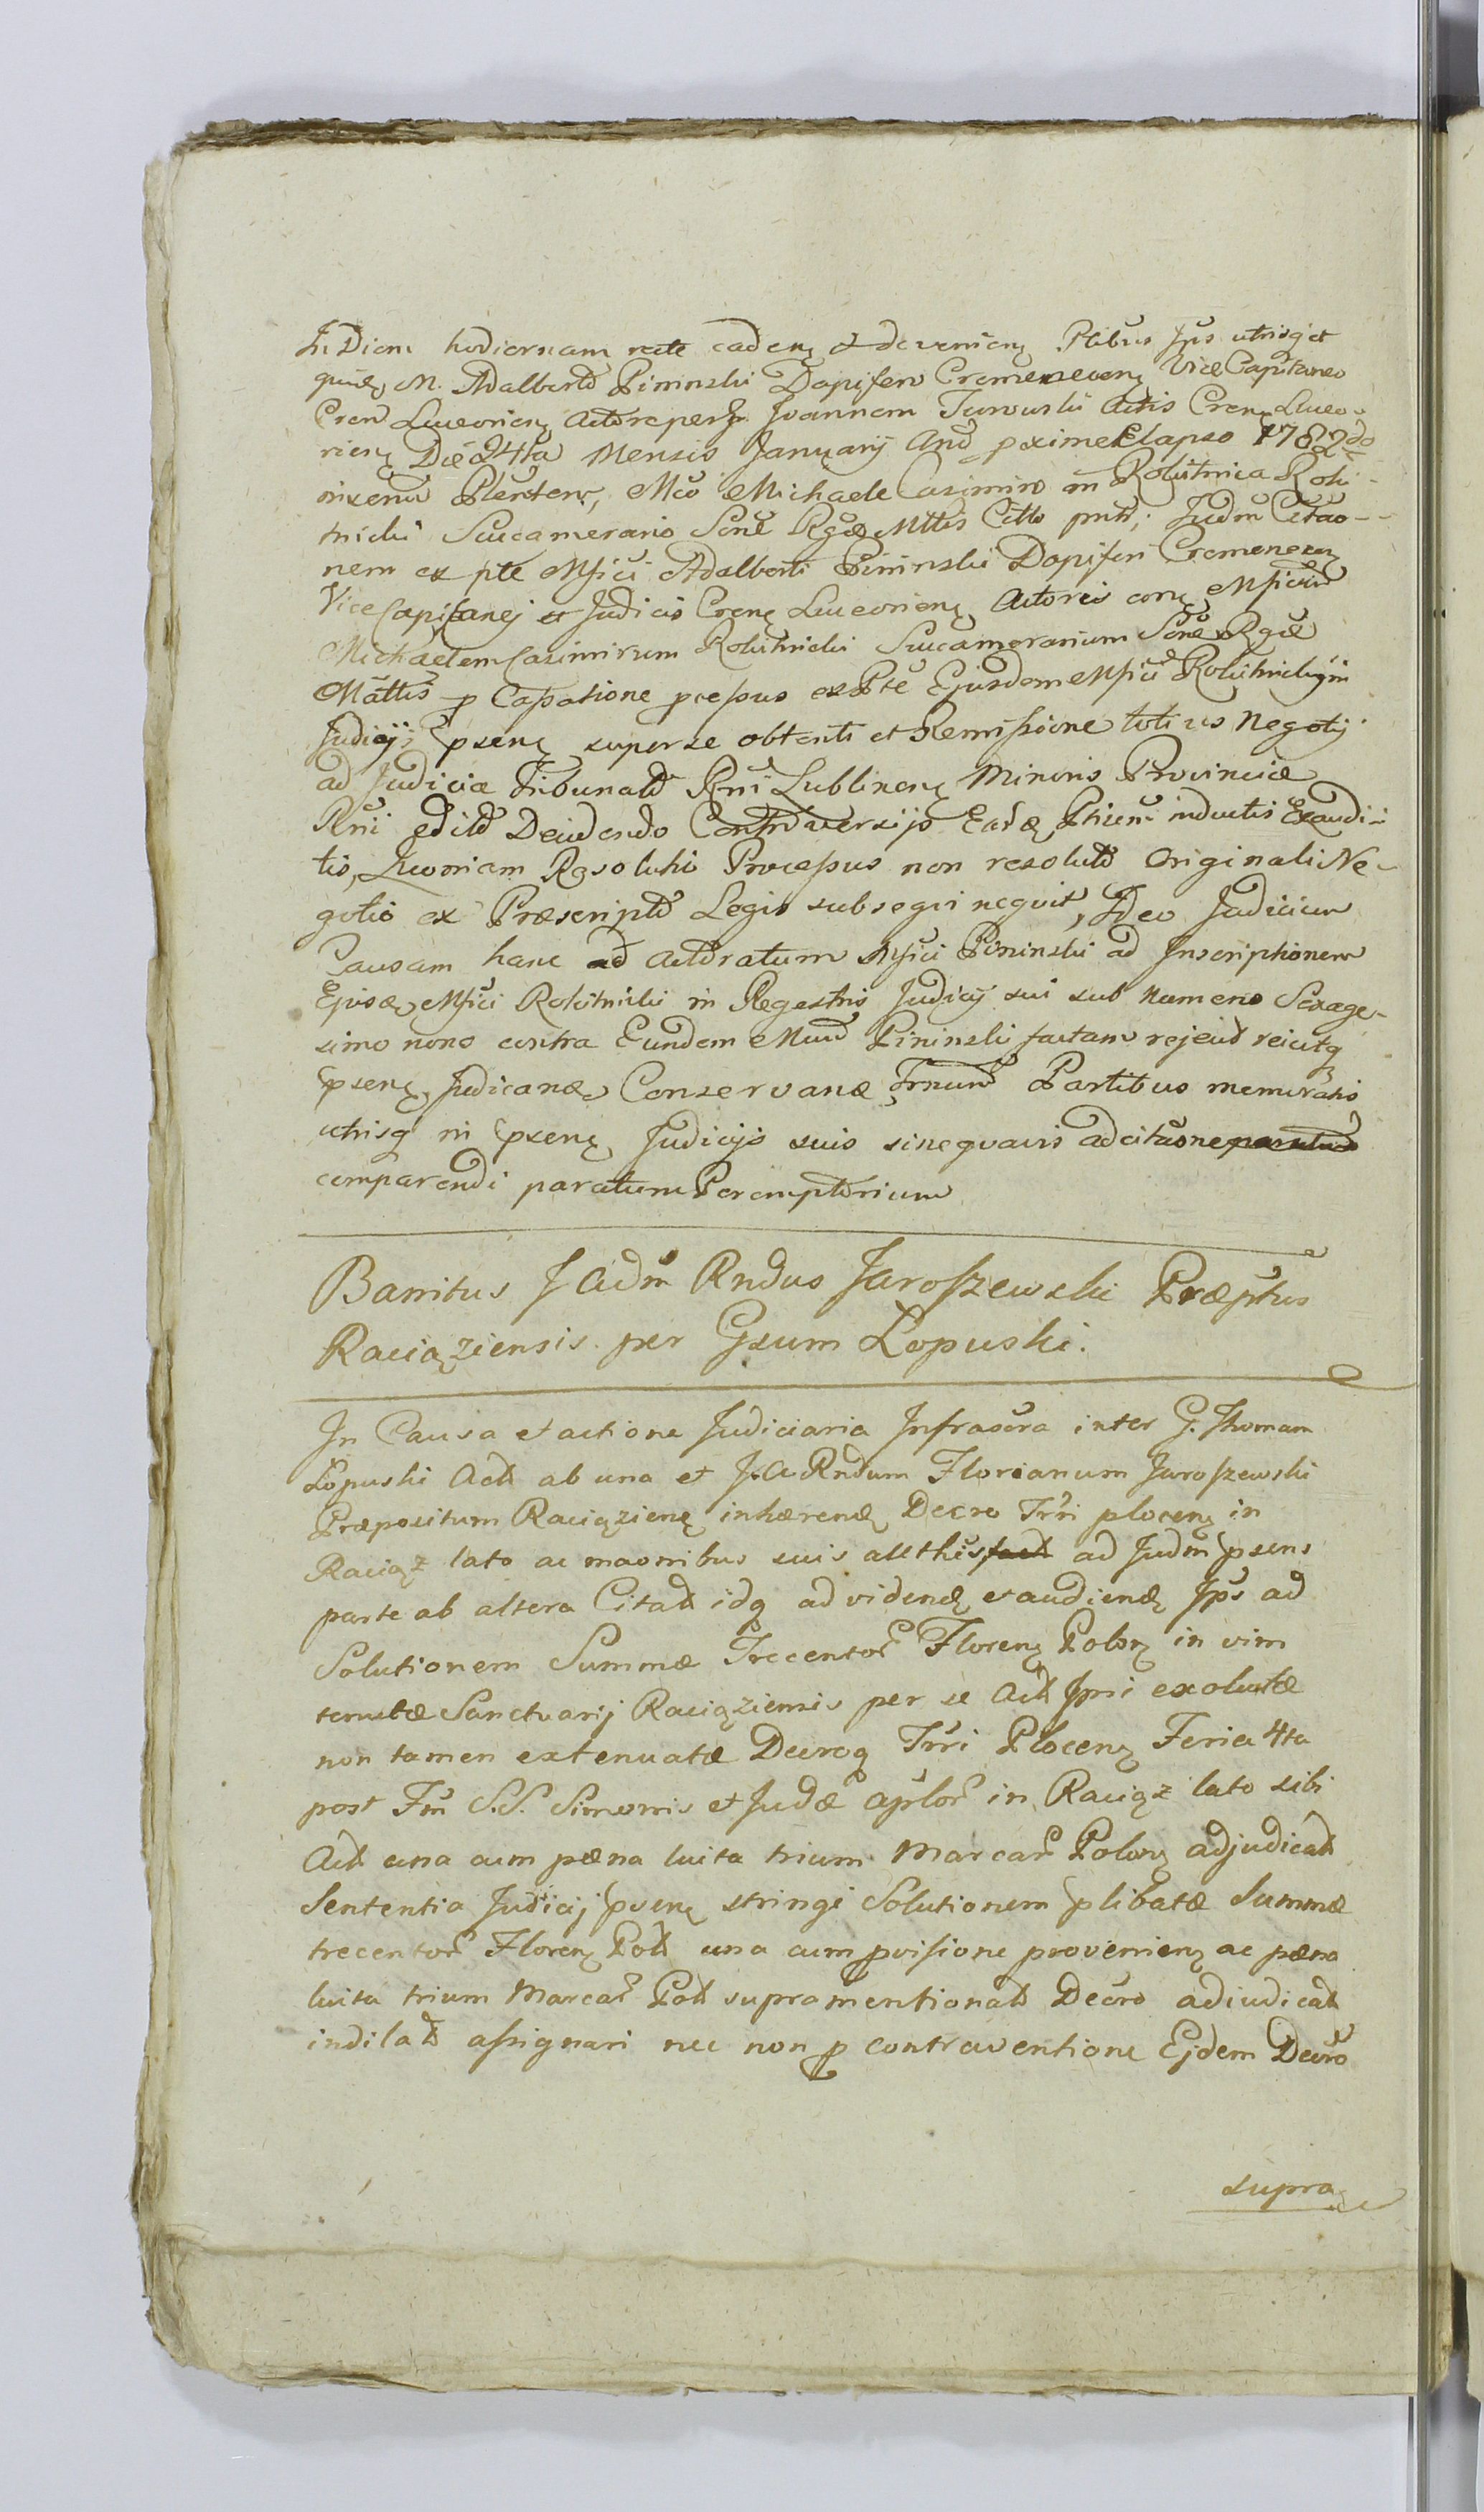 In Diem hodiernam recte cadeną & devenieną Ptibus Jps utrisq et
quidę M. Adalberto Pininski Dapifero Cremeneceną ViceCapitaneo
Cren Luceorieną Actore per G. Joannem Turowski Actis Creną Luceo-
rieną Die 24ta Mensis January Anō pxime Elapso 1782do
Mco Michaele Casimiro in Rokitnica Roki-
tnicki Succamerario Scnē Rgiæ Mttis Citto pntt; Judm Citāo-
nem ex pte Mfici Adalberti Pininski Dapiferi Cremeneceną
ViceCapitanej et Judicis Creną Luceorieną Actoris corą Mficum
Michaelem Casimirum Rokitnicki Succamerarium Scnē Rgiæ
Mattis p Cassatione pcessus ex Pte Ejusdem Mfici Rokitnicki in
Judicijs pseną super se obtenti et Remissione totius Negotij
ad Judicia Tribunald Rni Lublineną Minoris Provinciæ
Rni edild Decidendo Controversijs Eardę Ptium inductis Exaudi-
tis, Quoniam Resoluti Processus non resoluto Originali Ne-
gotio ex Præscripto Legis subsequi nequit, Ideo Judicium
Causam hanc ad Actoratum Mfici Pininski ad Inscriptionem
Ejusdę Mfici Rokitnicki in Regestris Judicij sui sub Numero Sexage-
simo nono contra Eundem Mcum Pininski factam rejecit reictq
pseną Judicandę Conservandę Trnum Partibus memoratis
utrisq in pseną Judicijs suis sine quavis adcitāone paratum
comparendi paratum Peremptorium
Bannitus J Adm Rndus Jaroszewski Præptus
Raciąziensis per Gsum Łopuski.
In Causa et actione Judiciaria Infrascra inter G. Thomam
Łopuski Actt ab una et J. A Rndum Florianum Jaroszewski
Præpositum Raciązieną inhærendę Decro Trri ploceną in
Raciąz lato ac maonibus suis ad Judm psens
parte ab altera Citatt idq ad videndę et audiendę Jps ad
Solutionem Summæ Trecentor Floreną Polon in vim
tenutæ Sanctuarij Raciąziensis per se Actt Jpsi exolutæ
non tamen extenuatæ Decroq Trri Ploceną Feria 4ta
post Fm S.S. Simonis et Judæ aplor in Raciąz lato sibi
Actt una cum pæna luita trium Marcar Polon adjudicatt
Sententia Judicij pseną stringi Solutionem plibatæ Summæ
trecentor Floreną Poll una cum pvisione provenieną ac pæna
luita trium Marcar Poll supramentionatt Decro adiudicatt
indilatt assignari nec non p contraventione Ejdem Decro
supra